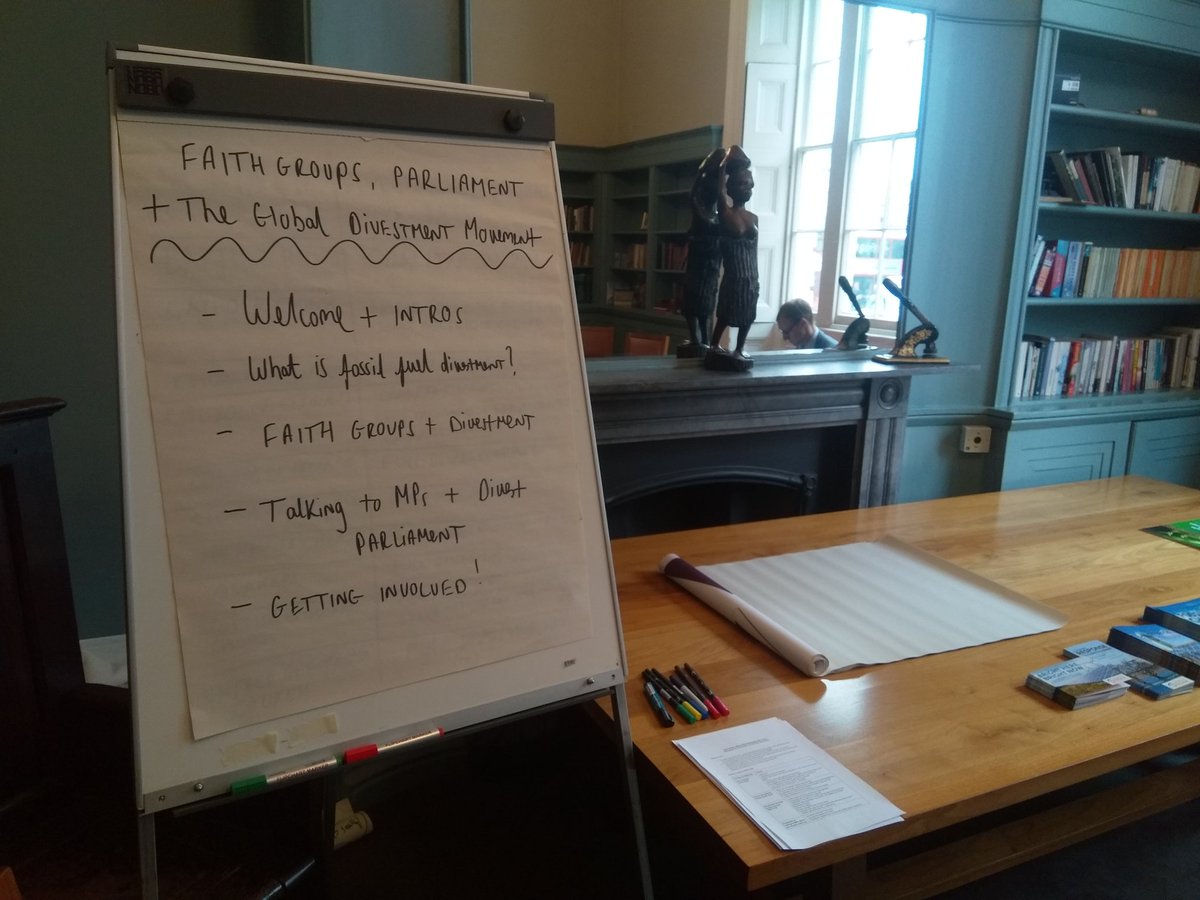 FAITH GROUPS, PARLIAMENT
+ The Global Divestment Movement
- Welcome + INTROS
- What is fossil fuel divestment?
- FAITH GROUPS + Divestment
- Talking to MPs + Divest
PARLIAMENT
- GETTING INVOLVED!